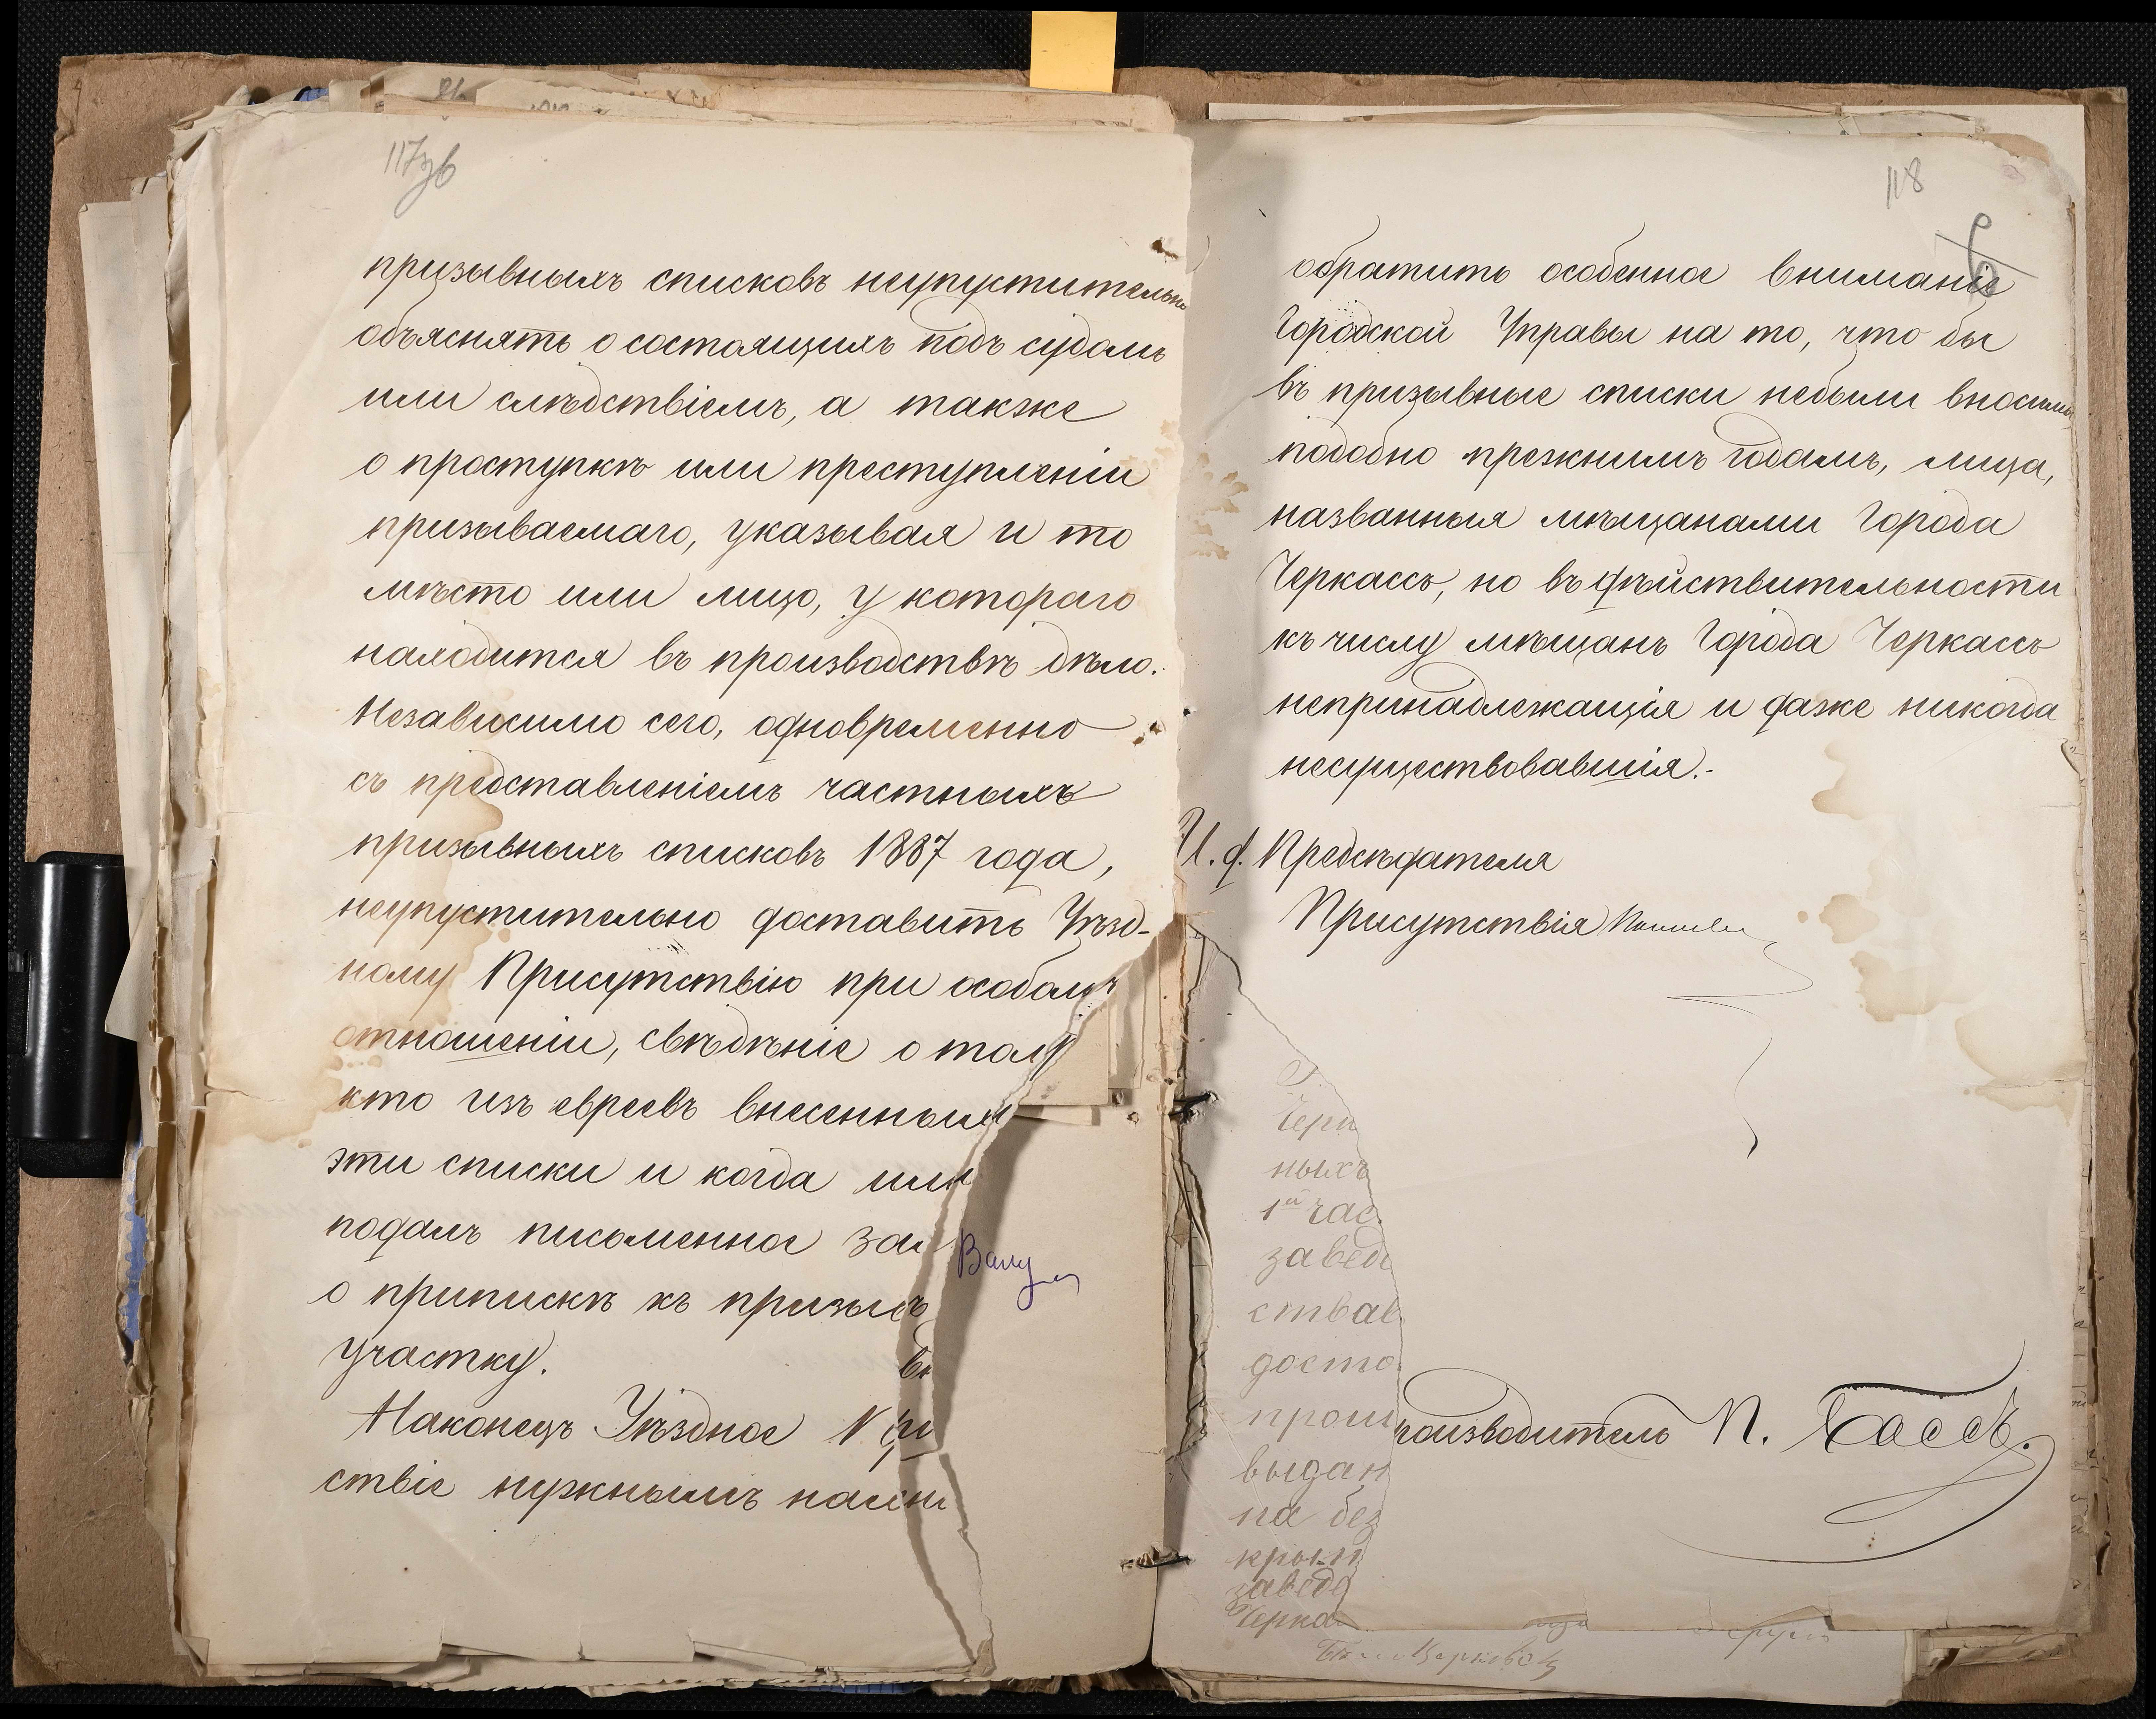 117зв
призывныхъ списковъ неупустительно
объяснять о состоящихъ подъ судомъ
или слѣдствіемъ, а также
о проступкѣ или преступленіи
призываемаго, указывая и то
мѣсто или лицо, у котораго
находится въ производствѣ дѣло.
Независимо сего, одновременно
съ представленіемъ частныхъ
призывныхъ списковъ 1887 года,
неупустительно доставить Уѣзд-
ному Присутствію при особомъ
отношеніи, свѣдѣніе о том
кто изъ евреевъ внесенных
эти списки и когда им
подалъ письменное зая
о припискѣ къ призыв
участку.
Наконецъ Уѣздное При
ствіе нужнымъ
118
обратить особенное вниманіе
Городской Управы на то, что бы
въ призывные списки небыли вносимы
подобно прежнимъ годамъ, лица,
названныя мѣщанами города
Черкассъ, но въ дѣйствительности
къ числу мѣщанъ города Черкассъ
непринадлежащія и даже никогда
несуществовавшія.-
И. д. Предсѣдателя
Присутствія
Черк
ныхъ
1й час
завед
ствав
досто
прои
роизводитель П. Бассъ.
выдан
на без
крып
завед
Черка